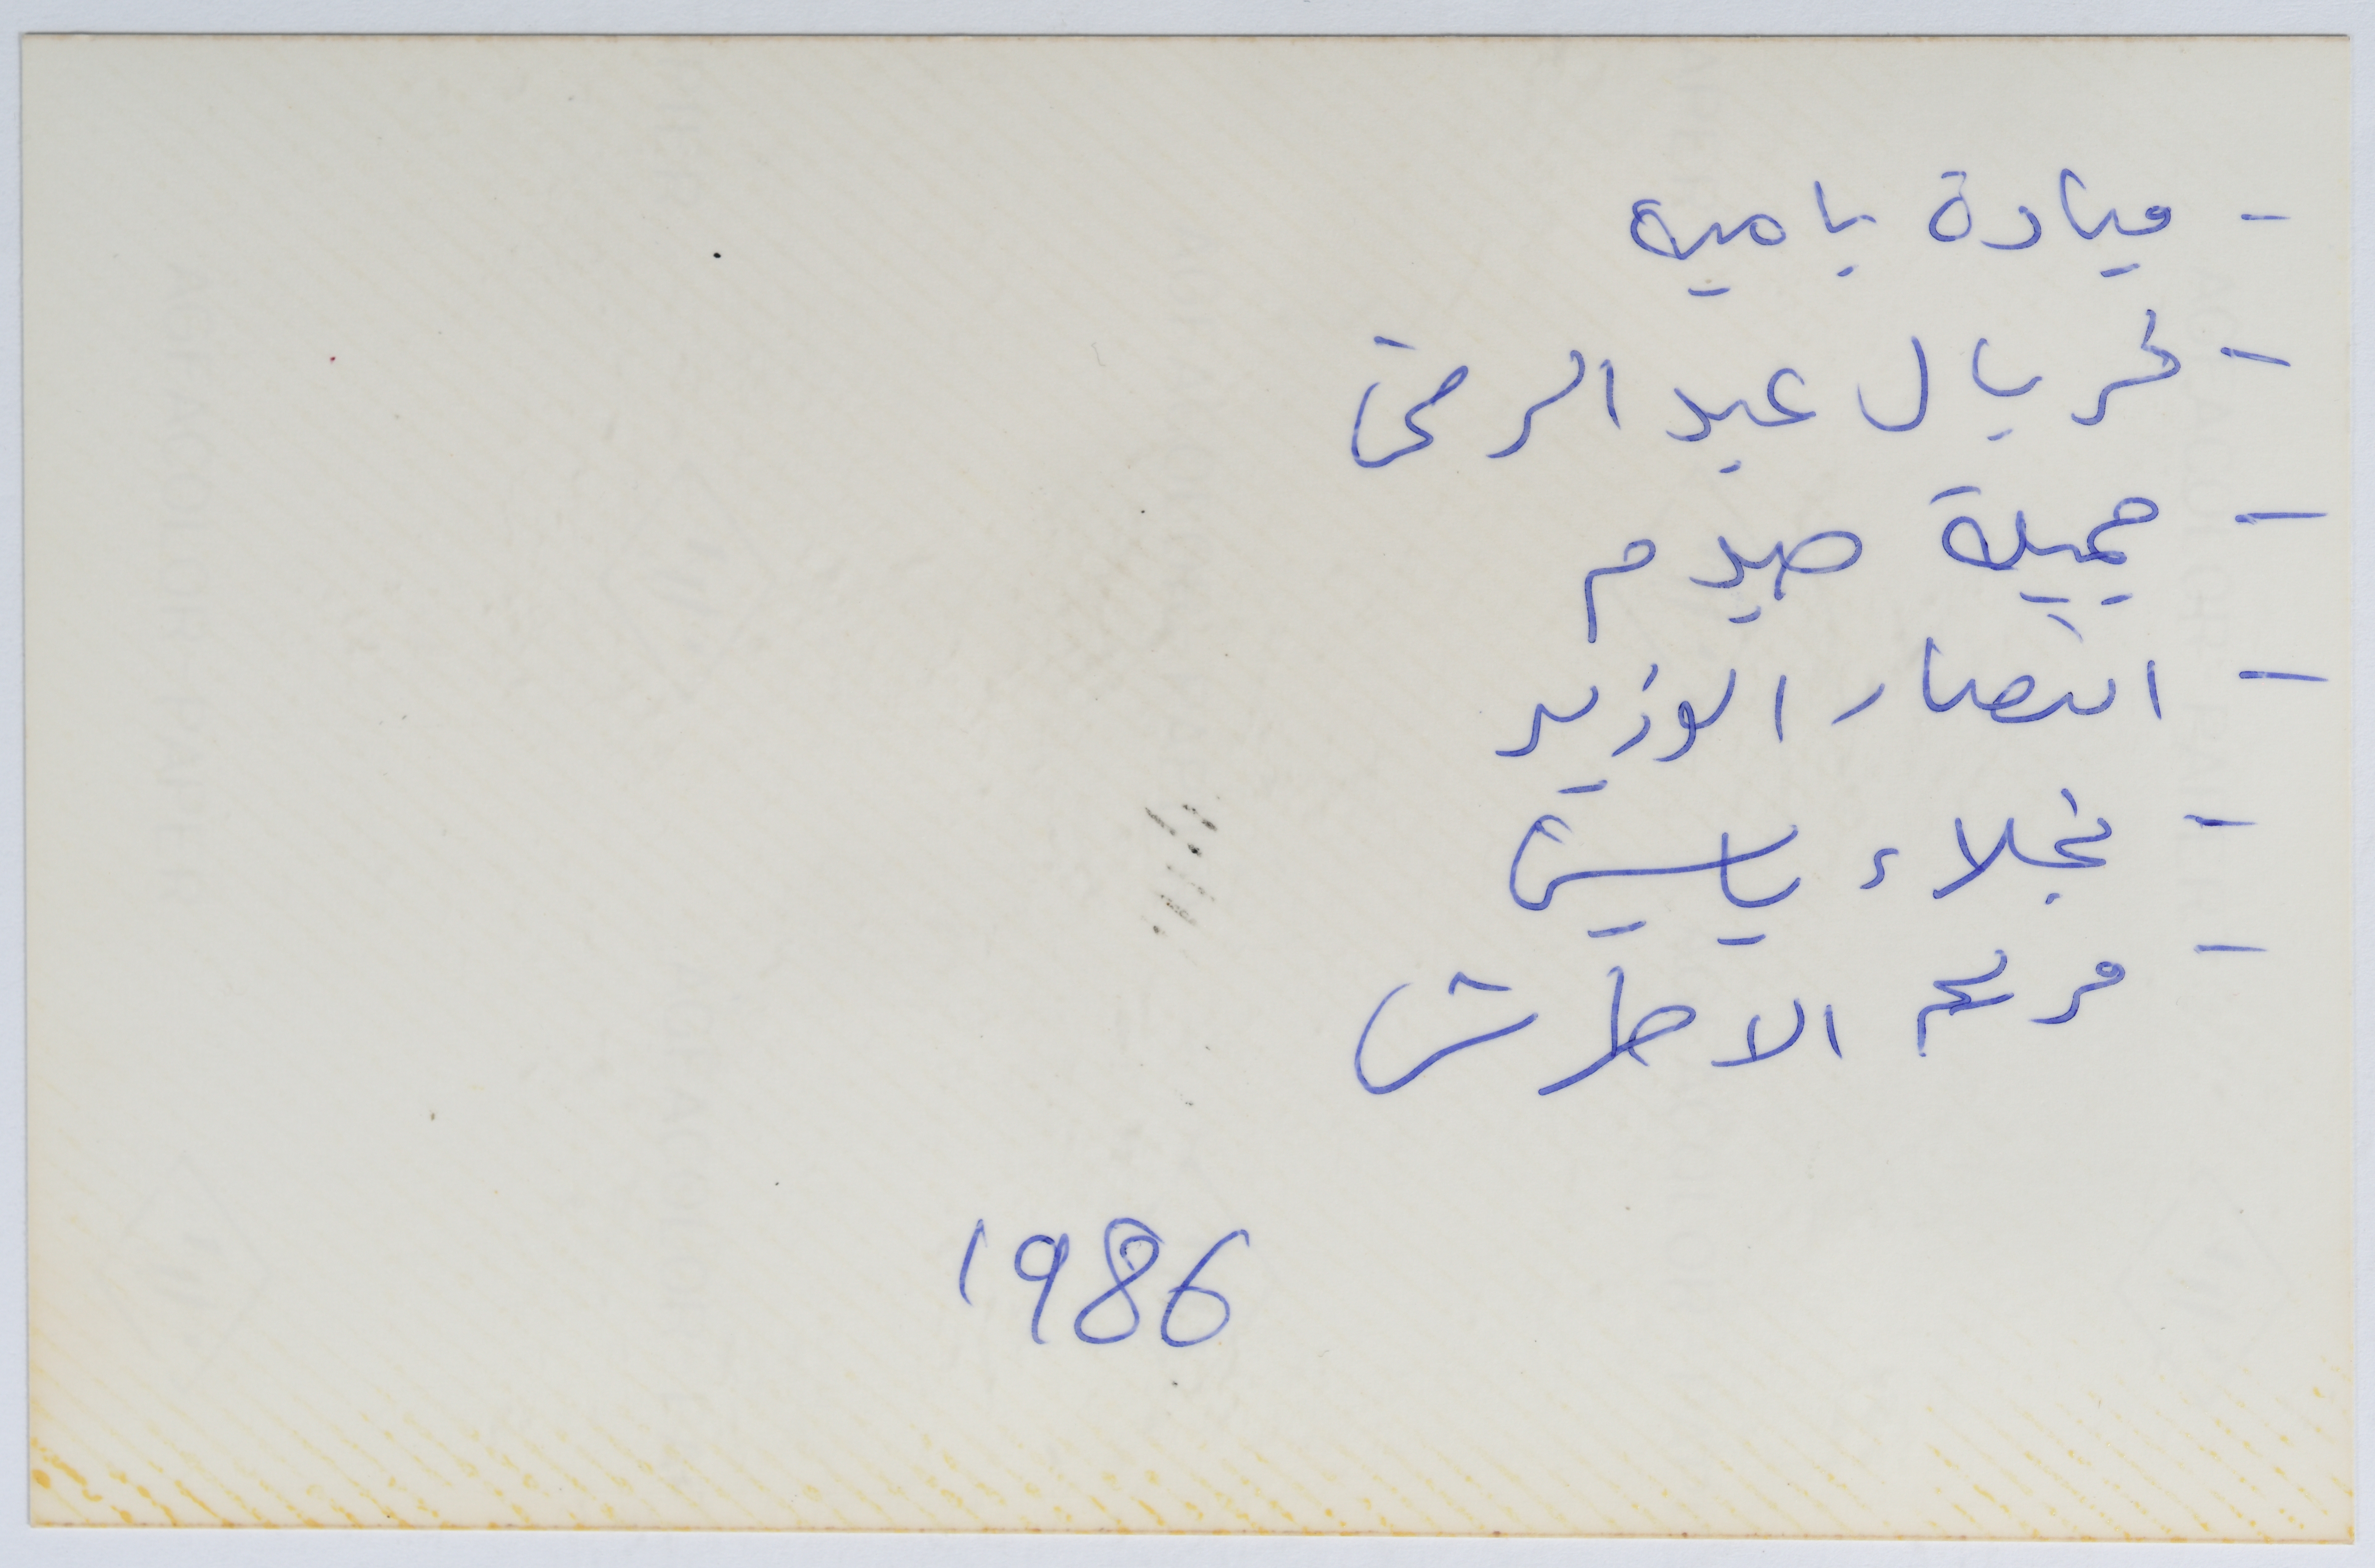 - ميادة باميه
- فريال عبد الرحمن
- جميلة صيدم
- انتصار الوزير
- نجلاء ياسين
- مريم الاطرش
1986